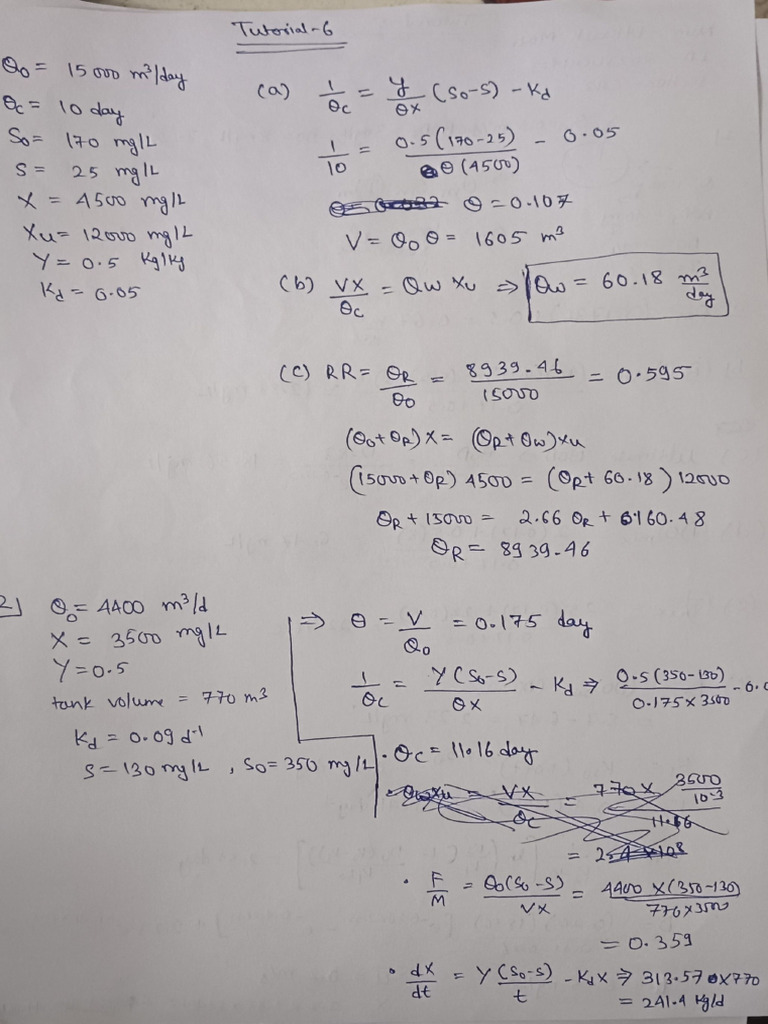 Tutorial-6
Q0 = 15000 m³/day
θc = 10 day
S0 = 170 mg/L
S = 25 mg/L
X = 4500 mg/L
Xu = 12000 mg/L
Y = 0.5 Kg/Kg
Kd = 0.05
(a) 1/θc = y/θX (S0-S) - Kd
1/10 = 0.5(170-25)/θ(4500) - 0.05
θ = 0.107
V = Q0 θ = 1605 m³
(b) VX/θc = Qw Xu ⇒ Qw = 60.18 m³/day
(c) RR = QR/Q0 = 8939.46/15000 = 0.595
(Q0+QR)X = (QR+Qw)Xu
(15000+QR) 4500 = (QR+ 60.18) 12000
QR + 15000 = 2.66 QR + 160.48
QR = 8939.46
2] Q0 = 4400 m³/d
X = 3500 mg/L
Y = 0.5
tank volume = 770 m³
Kd = 0.09 d⁻¹
S = 130 mg/L , S0 = 350 mg/L
⇒ θ = V/Q0 = 0.175 day
1/θc = Y(S0-S)/θX - Kd ⇒ 0.5(350-130)/0.175×3500 - 0.0
· θc = 11.16 day
· F/M = Q0(S0-S)/VX = 4400 ×(350-130)/770×3500
= 0.359
· dX/dt = Y (S0-S)/t - KdX ⇒ 313.57 ×770
= 241.4 Kg/d